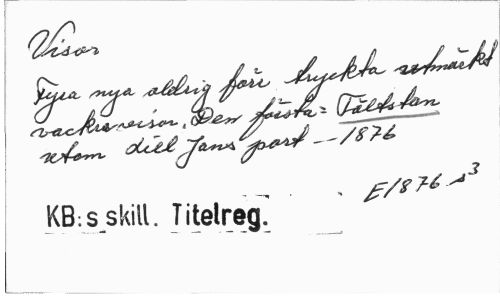 Visor
Fyra nya aldrig förr tryckta utmärkt
vackra visor. Den första: Tältstan
utom dill Jans port --- 1876
E1876 s3
KB:s skill. Titelreg.